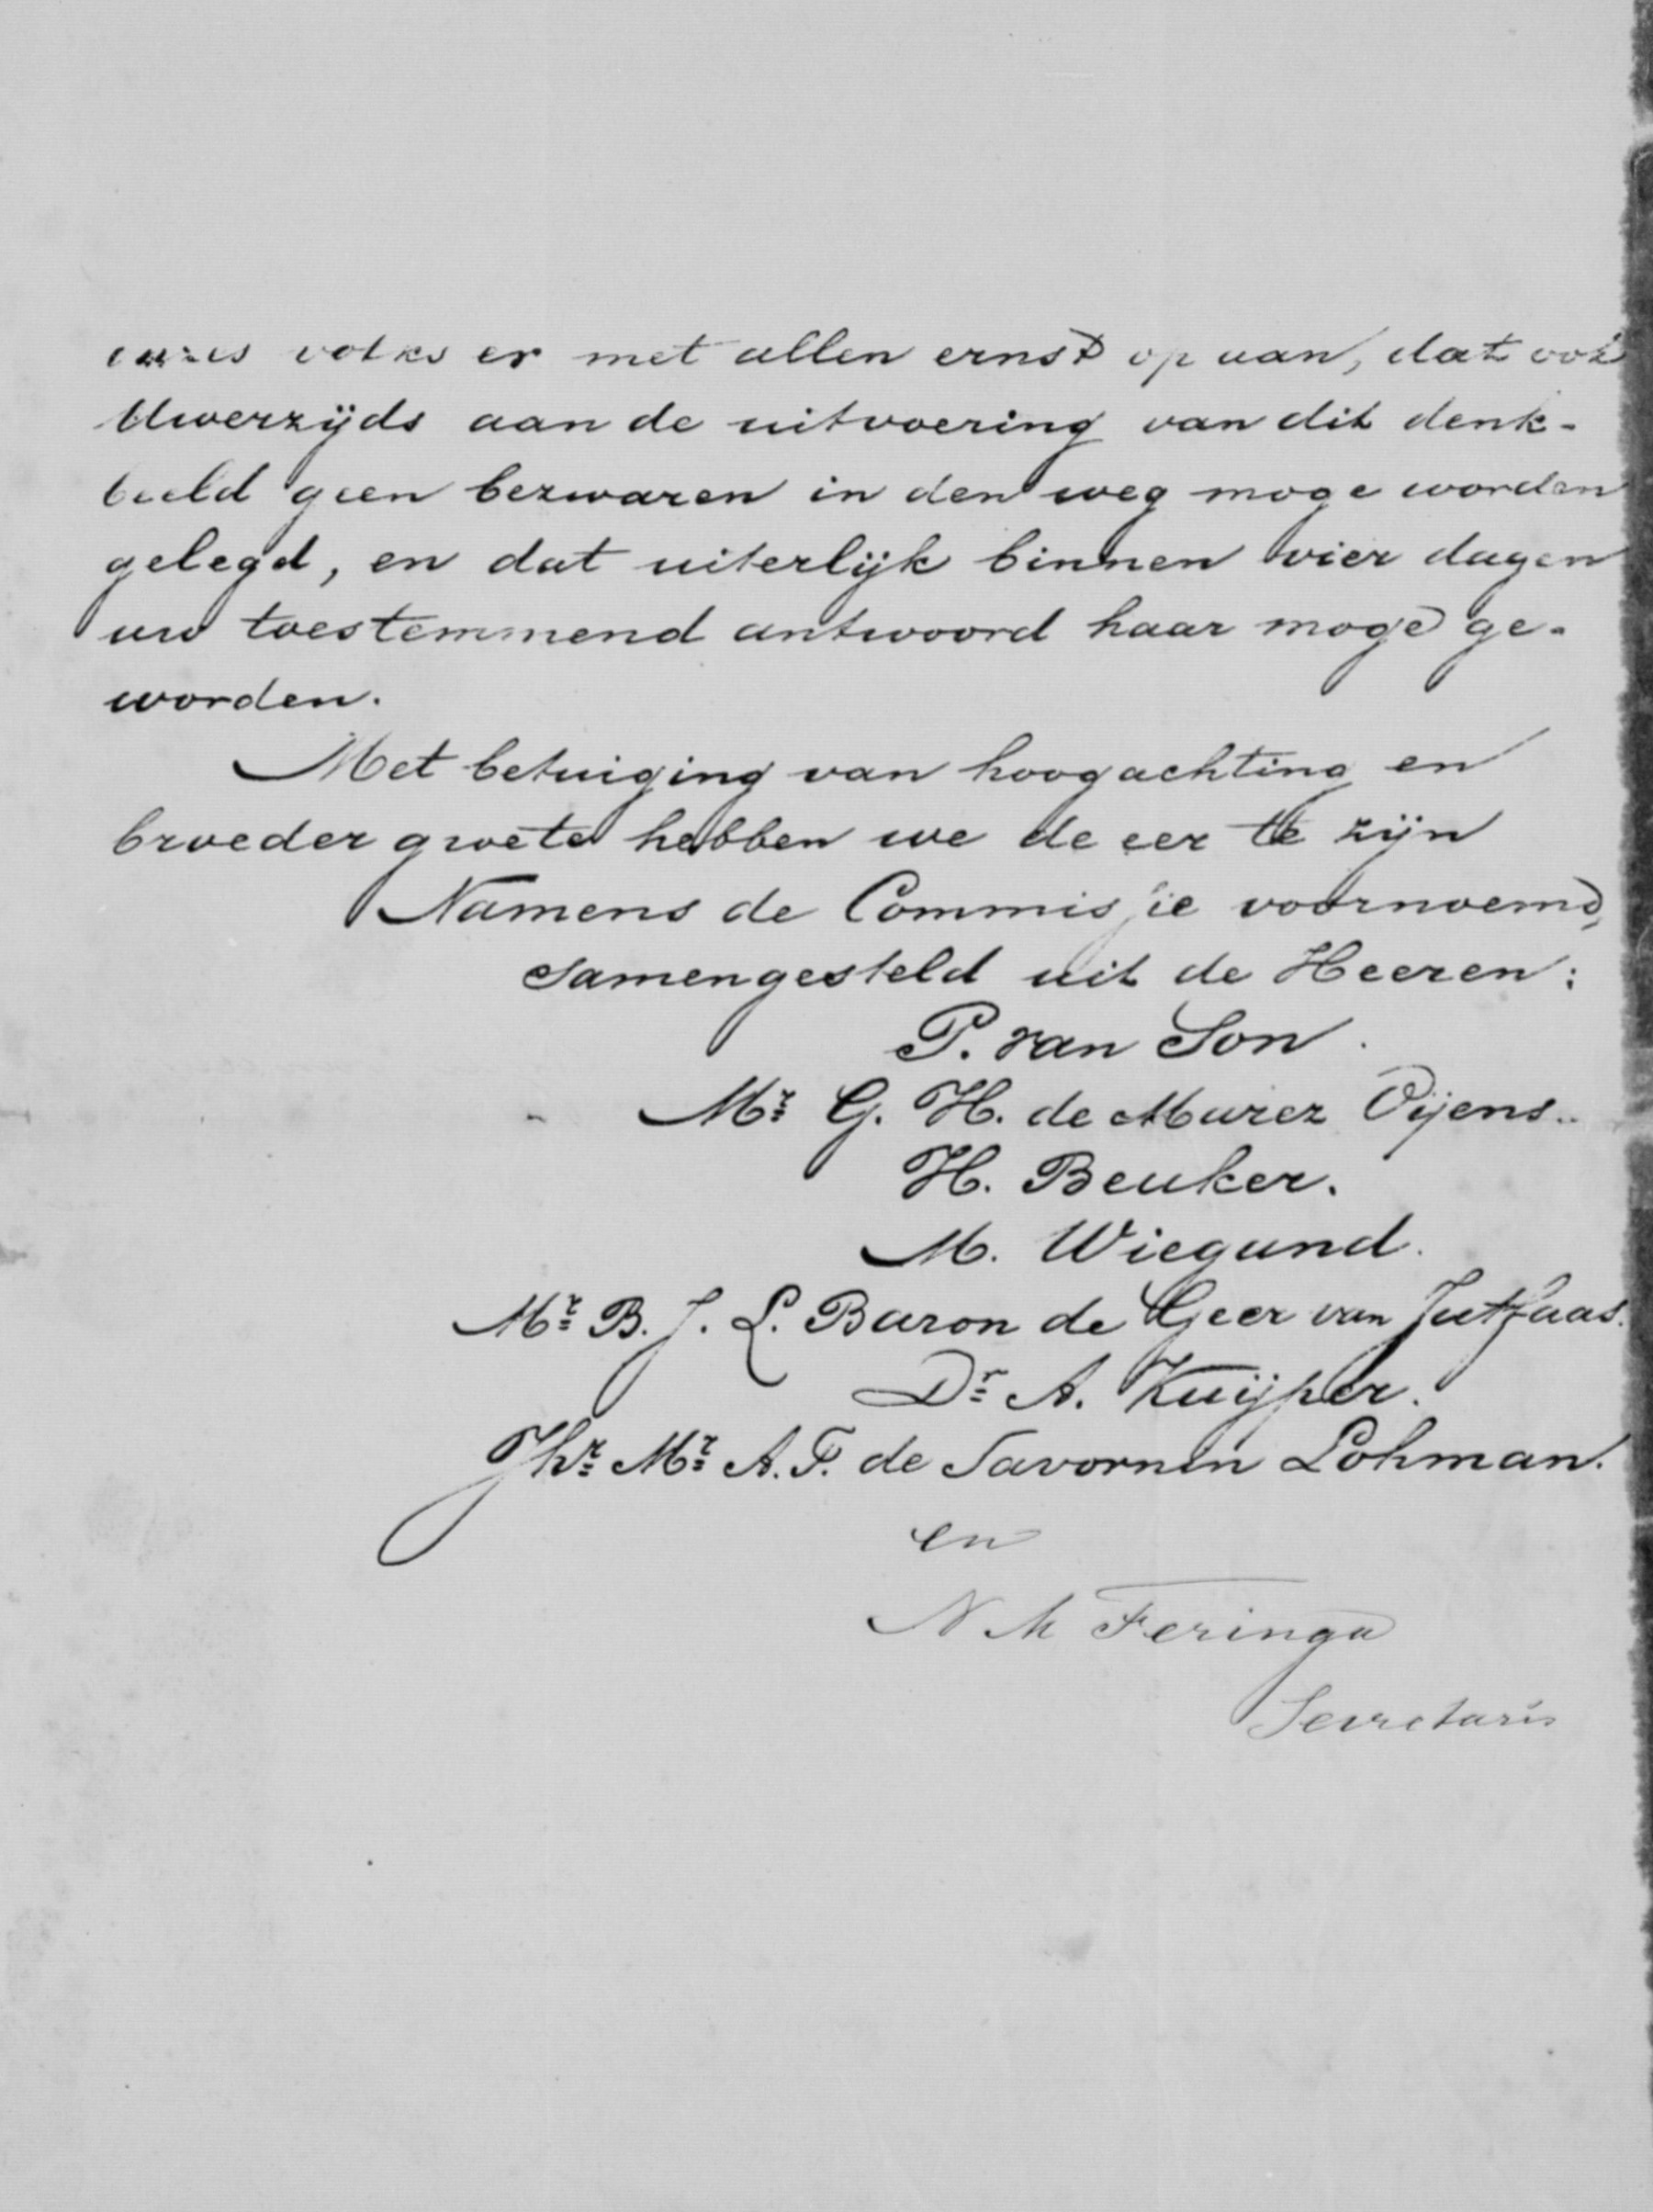 onzes volks er met allen ernst op aan, dat ook
Uwerzijds aan de uitvoering van dit denk-
beeld geen bezwaren in den weg moge worden
gelegd, en dat uiterlijk binnen vier dagen
uw toestemmend antwoord haar moge ge-
worden.
Met betuiging van hoogachting en
broeder groete hebben we de eer te zijn
Namens de Commissie voornoemd,
samengesteld uit de Heeren:
P. van Son.
Mr. G. H. de Marez Oijens.
H. Beuker.
M. Wiegand.
Mr. B. J. L. Baron de Geer van Jutfaas.
Dr. A. Kuijper.
Jhr. Mr. A. F. de Savornin Lohman.
en
N M Feringa
Secretaris